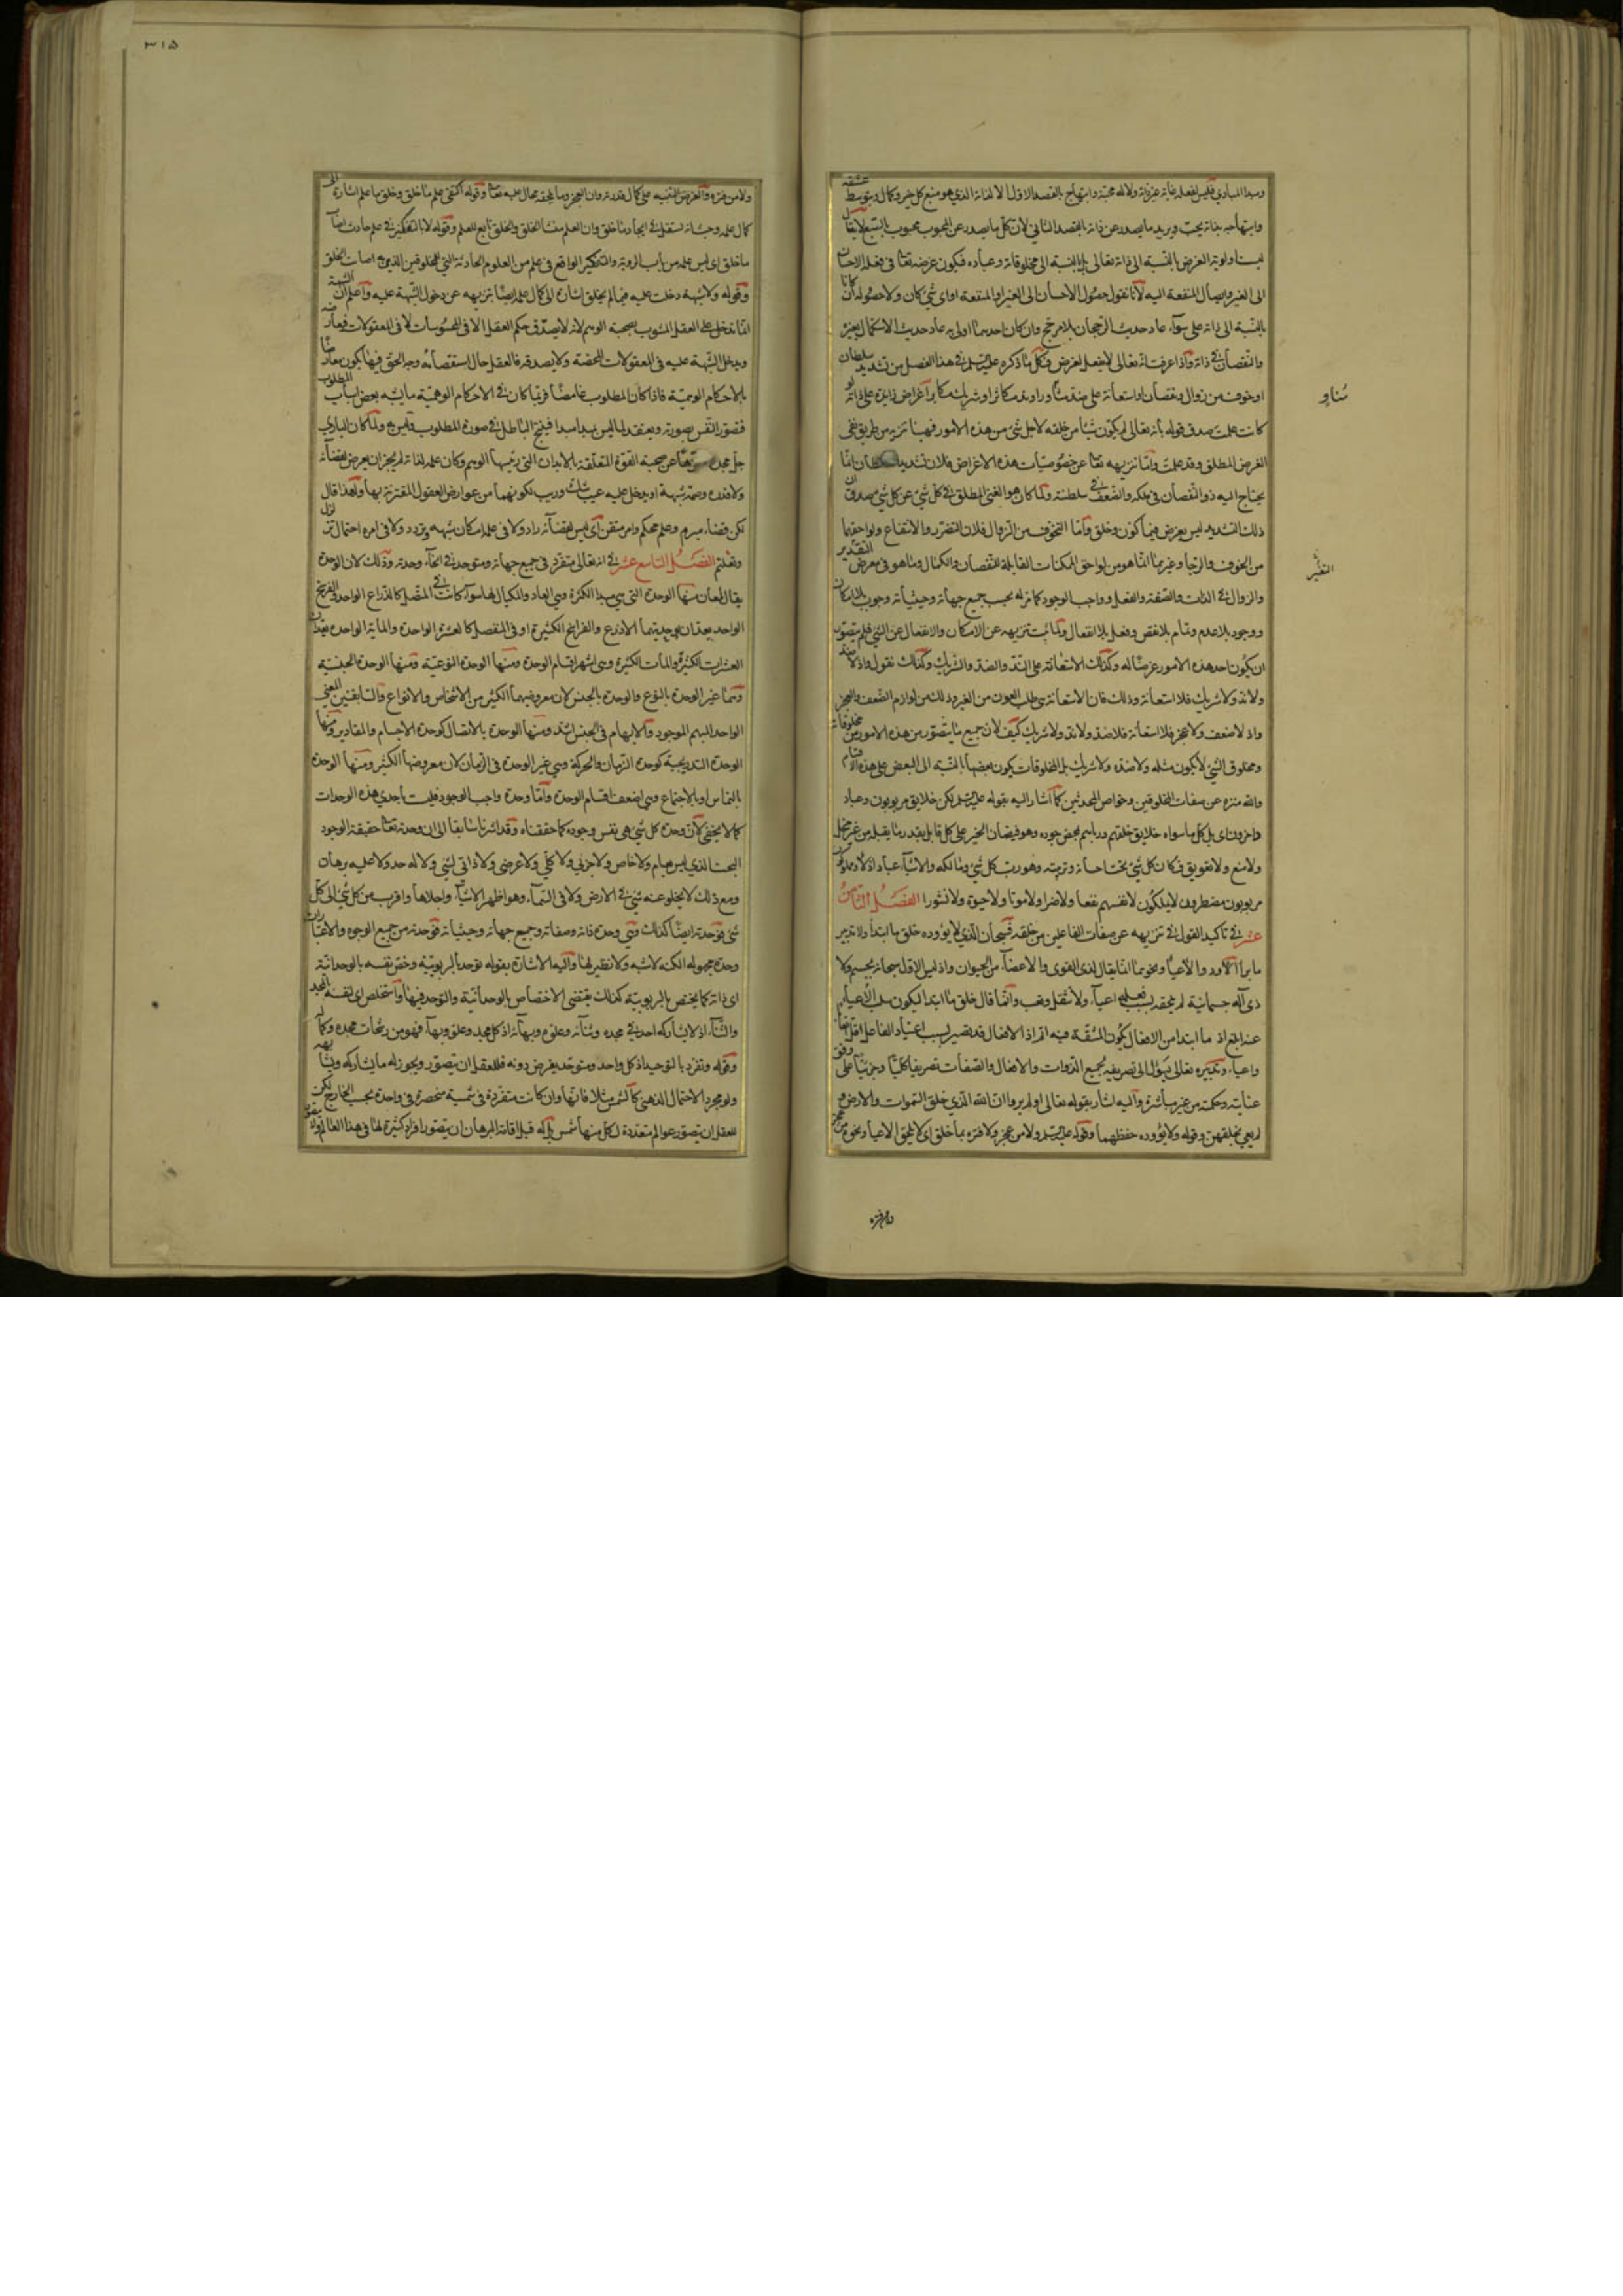 ومبدا المبادى فليس لفعله غاية غير ذاته ولا له محبة وابتهاج بالقصد الاول الا لذاته الذى هو منبع كل خير وكمال وبتوسط عشقه
وابتهاجه بذاته يحب ويريد ما يصدر عن ذاته بالقصد الثانى لان كل ما يصدر عن المحبوب محبوب بالتبع لا يقال
ليست اولوية الغرض بالنسبة الى ذاته تعالى بل بالنسبة الى مخلوقاته وعباده فيكون غرضه تعا فى فعله الاحسان
الى الغير وايصال المنفعة اليه لانا نقول حصول الاحسان الى الغير او المنفعة او اى شئ كان ولا حصوله ان كانا
بالنسبة الى ذاته على سواء عاد حديث الرجحان بلا مرجح وان كان احدهما اولى به عاد حديث الاستكمال بغيره
والنقصان فى ذاته واذا عرفت انه تعالى لا يفعل لغرض فكل ما ذكره عليه السلم فى هذا الفصل من تشديد سلطان
او خوف من زوال ونقصان او استعانة على ند مكاثر او شريك مكابر اغراض زايدة على ذاته
كانت علمت صدق قوله بانه تعالى لم يكون شيئا من خلقه لاجل شئ من هذه الامور فهذا تنزيه من طريق نفى
الغرض المطلق وقد علمت واما تنزيهه تعا عن خصوصيات هذه الاغراض فلان تشديد السلطان انما
يحتاج اليه ذو النقصان فى ملكه والضعف فى سلطنته ولما كان هو الغنى المطلق فى كل شئ عن كل شئ صدق ان
ذلك التشديد ليس بغرض فيما كون وخلق واما التخوف من الزوال فلان التضرر والانتفاع ولواحقهما
من الخوف والرجاء وغيرهما انما هو من لواحق الممكنات القابلة للنقصان والكمال وما هو فى معرض التغير
والزوال فى الذات والصفة والفعل وواجب الوجود كما مر له بحسب جميع جهاته وحيثياته وجوب بلا امكان
ووجود بلا عدم وتمام بلا نقص وفعل بلا انفعال ولما ثبت تنزيهه عن الامكان والانفعال عن الشئ فلم يتصور
ان يكون احد هذه الامور غرضا له وكذلك الاستعانة على الند والضد والشريك وكذلك نقول واذ لا ضد
ولا ند ولا شريك فلا استعانة وذلك فان الاستعانة هى طلب العون من الغير وذلك من لوازم الضعف والعجز
واذ لا ضعف ولا عجز فلا استعانة فلا ضد ولا ند ولا شريك كيف لان جميع ما يتصور من هذه الامور من مخلوقاته
ومخلوق الشئ لا يكون مثله ولا ضده ولا شريك بل المخلوقات يكون بعضها بالنسبة الى البعض على هذه الاقسام
والله منزه عن صفات المخلوقين وخواص المحدثين كما اشار اليه بقوله عليه السلم لكن خلايق مربوبون وعباد
داخرون اى بل كل ما سواه خلايق خلقهم وربهم بمحض جوده وهو فيضان الخير على كل قابل بقدر ما يقبله من غير بخل
ولا منع ولا تعويق فكان كل شئ تحت احسانه وتربيته وهو رب كل شئ ومالكه والاشياء عباد اذلاء مملوكون
مربوبون مضطرون لا يملكون لانفسهم نفعا ولا ضرا ولا موتا ولا حيوة ولا نشورا الفصل الثامن
عشر فى تاكيد القول فى تنزيهه عن صفات الفاعلين من خلقه فسبحان الذى لا يؤوده خلق ما ابتدا ولا تدبير
ما برا الاود والاعياء ونحوهما انما يقال لذى القوى والاعضاء من الحيوان واذ ليس الاول سبحانه بجسم ولا
ذى آلة جسمانية لم يلحقه بسبب فعله اعياء ولا ثقل وتعب وانما قال خلق ما ابتدا ليكون سلب الاعياء
عنه ابلغ اذ ما ابتدا من الافعال يكون المشقة فيه اتم اذ الافعال قد تصير بسبب اعتياد الفاعل اقل تعبا
واعياء وتدبيره تعالى يؤول الى تصريفه لجميع الذوات والافعال والصفات تصريفا كليا وجزئيا على وفق
عنايته وحكمته من غير مباشرة واليه اشار بقوله تعالى اولم يروا ان الله الذى خلق السموات والارض و
لم يعى بخلقهن وقوله ولا يؤوده حفظهما وقوله عليه السلم ولا من عجز ولا فترة بما خلق اى لا يلحق الاعياء ونحوه من عجز
ولا من فترة
متناو
التغير
٣١٥
ولا من فترة والغرض التنبيه على كمال قدرته وان العجز وما يلحقه محال عليه تعا وقوله اكتفى علم ما خلق وخلق ما علم اشارة الى
كمال علمه وحيث انه مستقل فى ايجاد ما خلق وان العلم منشا الخلق والخلق تابع للعلم وقوله لا بالتفكير فى علم حادث اصاب
ما خلق اى ليس علمه من باب الروية والتفكير الواقع فى علم من العلوم الحادثة التى للمخلوقين الذين اصاب الخلق
وقوله ولا شبهة دخلت عليه فيما لم يخلق اشارة الى كمال علمه ايضا تنزيهه عن دخول الشبهة عليه واعلم ان الشبهة
انما تدخل على العقل المشوب بصحبة الوهم لانه لا يصدق حكم العقل الا فى المحسوسات لا فى المعقولات فيعارضه
ويدخل الشبهة عليه فى المعقولات المحضة ولا يصدقه فالعقل حال استقصائه وجه الحق فيها يكون معارضا
بالاحكام الوهمية فاذا كان المطلوب غامضا فربما كان فى الاحكام الوهمية ما يشبه بعض اسباب المطلوب
فتصور النفس بصورته ويعتقد لما ليس بمبدا مبدا فينتج الباطل فى صورة المطلوب وليس به ولما كان البارى
جل مجده منزها عن صحبة القوة المتعلقة بالابدان التى رئيسها الوهم وكان علمه لذاته لم يجز ان يعرض لقضائه
ولا قدره وصمة شبهة او يدخل عليه عيب شك وريب لكونهما من عوارض العقول المقترنة بها ولهذا قال
لكن قضاء مبرم وعلم محكم وامر متقن اى ليس لقضائه راد ولا فى علمه امكان شبهه وتردد ولا فى امره احتمال تزلزل
وتغليط الفصل التاسع عشر فى انه تعالى متفرد فى جميع جهاته ومتوحد فى انحاء وحدته وذلك لان الوحدة
يقال لمعان منها الوحدة التى هى مبدا الكثرة وهى العاد والمكيال لها سواء كانت فى المتصل كالذراع الواحد والفرسخ
الواحد يعدان بوحدتيهما الاذرع والفراسخ الكثيرة او فى المنفصل كالعشرة الواحدة والماية الواحدة يعدان
العشرات الكثيرة والمآت الكثيرة وهى اشهر اقسام الوحدة ومنها الوحدة النوعية ومنها الوحدة الجنسية
وهما غير الوحدة بالنوع والوحدة بالجنس لان معروضهما الكثير من الاشخاص والانواع والسابقتين المعنى
الواحد المبهم الموجود والابهام فى الجنس اشد ومنها الوحدة بالاتصال كوحدة الاجسام والمقادير ومنها
الوحدة التدريجية كوحدة الزمان والحركة وهى غير الوحدة فى الزمان لان معروضها الكثير ومنها الوحدة
بالتماس او بالاجتماع وهى اضعف اقسام الوحدة واما وحدة واجب الوجود فليست باحدى هذه الوحدات
كما لا يخفى لان وحدة كل شئ هى نفس وجوده كما حققناه وقد اشرنا سابقا الى ان وحدته تعا حقيقة الوجود
البحت الذى ليس بعام ولا خاص ولا جزئى ولا كلى ولا عرضى ولا ذاتى لشئ ولا له حد ولا عليه برهان
ومع ذلك لا يخلو عنه شئ فى الارض ولا فى السماء وهو اظهر الاشياء واجلاها واقرب من كل شئ الى كل
شئ فوحدته ايضا كذلك وهى وحدة ذاته وصفاته وجميع جهاته وحيثياته فوحدته من جميع الوجوه والاعتبارات
وحدة مجهولة الكنه لا شبه ولا نظير لها واليه الاشارة بقوله توحد بالربوبية وخص نفسه بالوحدانية
اى ذاته كما يختص بالربوبية كذلك يقتضى الاختصاص بالوحدانية والتوحد فيها واستخلص اى لنفسه بالمجد
والثناء اذ لا يشاركه احد فى مجده وثنائه وعلوه وبهائه اذ كل مجد وعلو وبهاء فهو من رشحات مجده وكماله
وقوله وتفرد بالتوحيد اذ كل واحد ومتوحد يفرض دونه فللعقل ان يتصور ويجوز له ما يشاركه ويشابهه
ولو بمجرد الاحتمال الذهنى كالشمس مثلا فانها وان كانت متفردة فى شمسية منحصرة فى واحدة بحسب الخارج لكن
للعقل ان يتصور عوالم متعددة لكل منها شمس بل له قبل اقامة البرهان ان يتصور افراد كثيرة لها فى هذا العالم